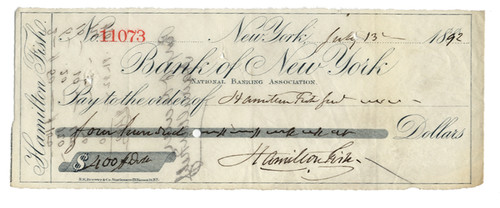 Hamilton Fish
No. 11073
New York, July 13 1892
Bank of New York
NATIONAL BANKING ASSOCIATION.
Pay to the order of Hamilton Fish
four hundred Dollars
$400 Dols
Hamilton Fish